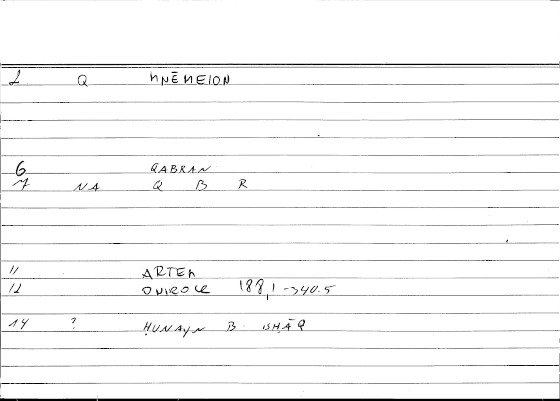 1 Q MNĒMEION
6 QABRAN
7 NA Q B R
11 ARTEM
12 ONIROCR 188,1 → 340.5
14 ? ḤUNAYN B. ISḤĀQ